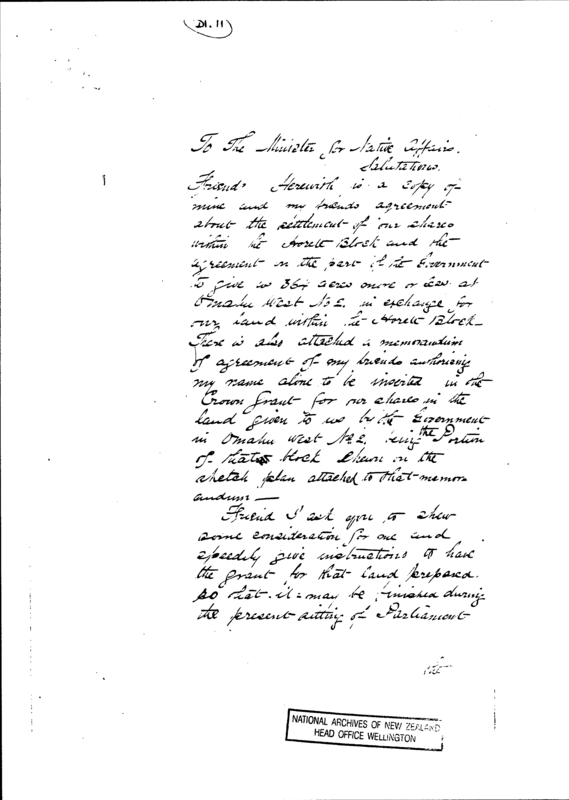 D1.11
To The Minister for Native Affairs.
Salutations.
Friend. Herewith is a copy of
mine and my friends agreement
about the settlement of our shares
within the Horete Block and the
agreement on the part of the Government
to give us 364 acres more or less at
Omahu West No 2. in exchange for
our land within the Horete Block_
There is also attached a memorandum
of agreement of my friends authorising
my name alone to be inserted in the
Crown Grant for our shares in the
land given to us by the Government
in Omahu West No 2. being the Portion
of that block shewn on the
sketch plan attached to that memor
andum —
Friend I ask you to shew
some consideration for me and
speedily give instructions to have
the grant for that land prepared.
so that it may be finished during
the present sitting of Parliament
NATIONAL ARCHIVES OF NEW ZEALAND
HEAD OFFICE WELLINGTON